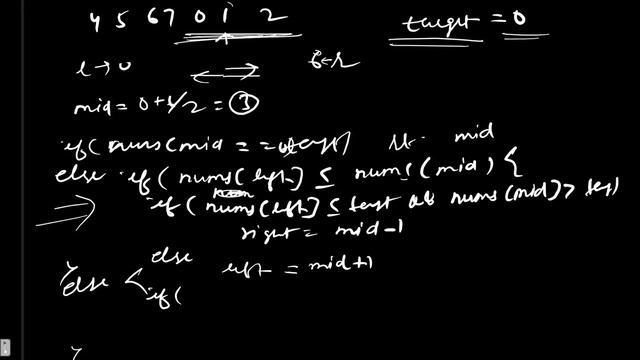 4 5 6 7 0 1 2
target = 0
l → 0
mid = 0+6/2 = 3
if( nums(mid == target) mid
else if( nums[left] ≤ nums(mid) {
if( nums[left] ≤ target && nums(mid) > target)
right = mid-1
else left = mid+1
else {
if(